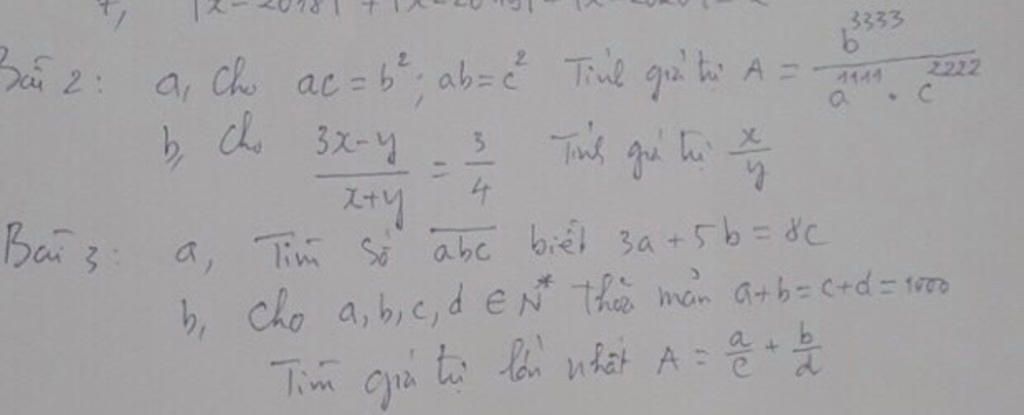 7, |x-2018| + |x-2019|
Bài 2: a, Cho ac = b²; ab = c² Tính giá trị A = b³³³³ / a¹¹¹¹ . c²²²²
b, Cho 3x-y / x+y = 3/4 Tính giá trị x/y
Bài 3: a, Tìm số abc biết 3a + 5b = 8c
b, Cho a, b, c, d ∈ N* thỏa mãn a+b = c+d = 1000
Tìm giá trị lớn nhất A = a/c + b/d